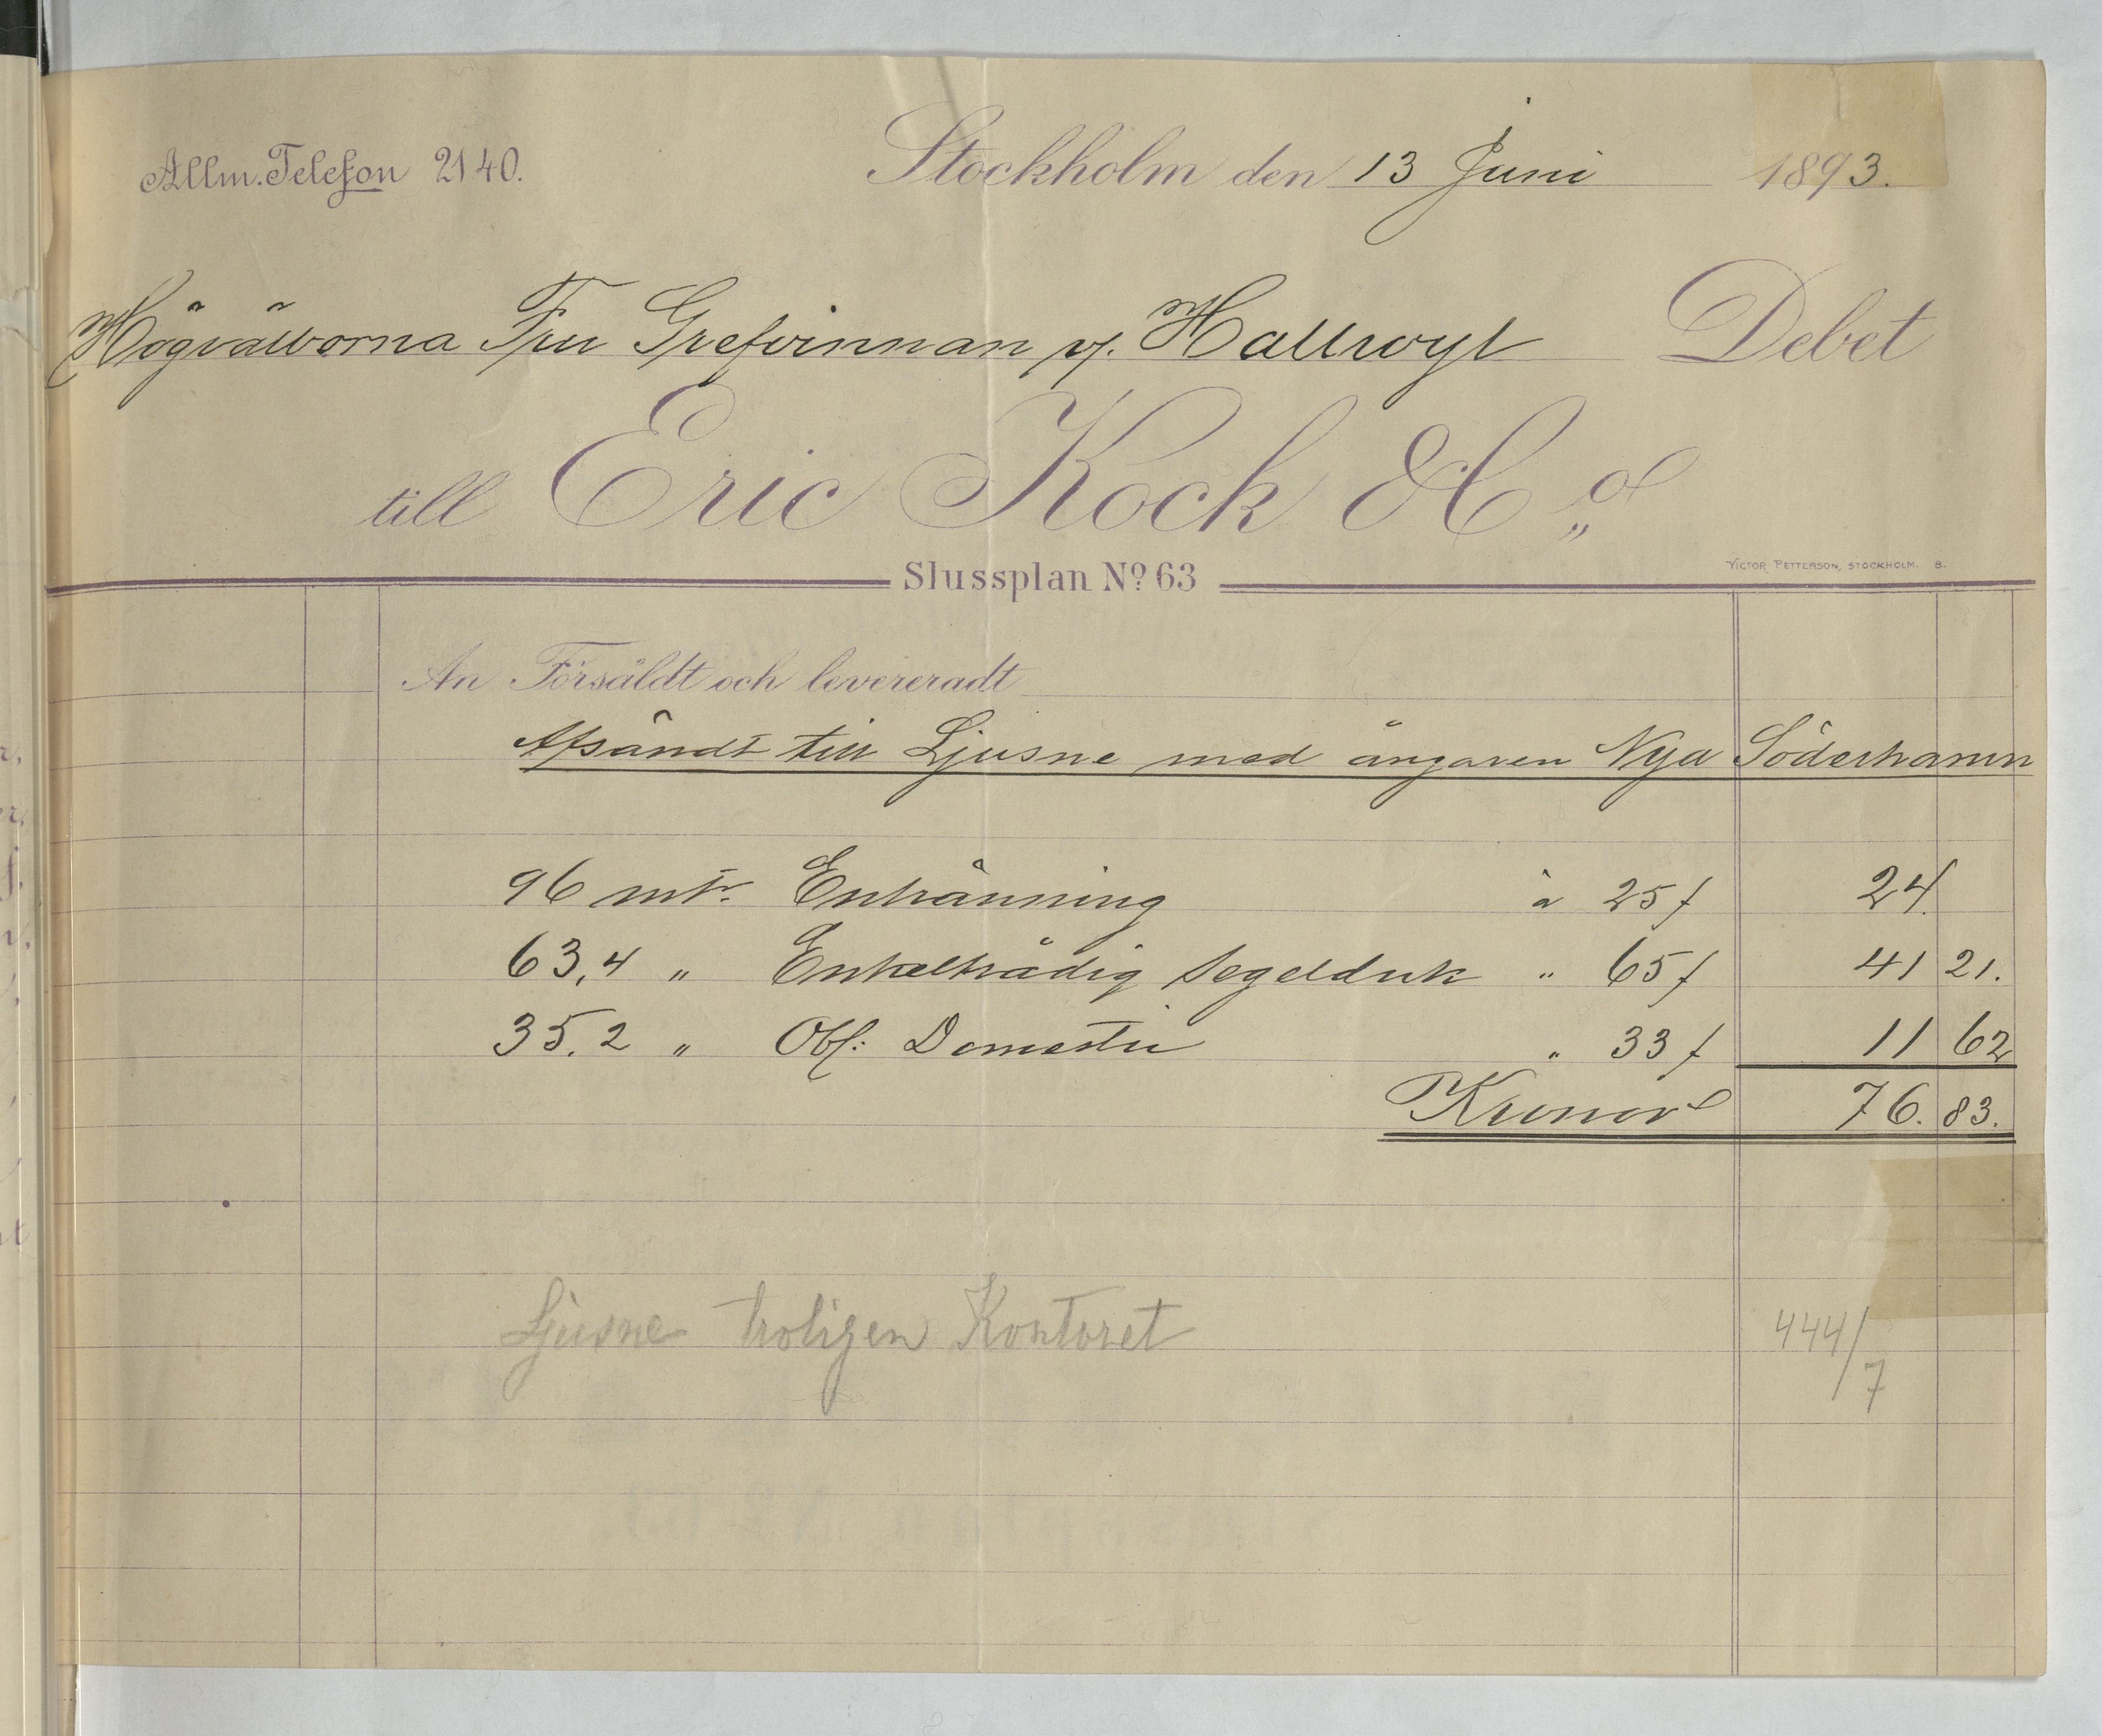 Allm. Telefon 2140.
Stockholm den 13 Juni 1893.
Högvälborna Fru Grefvinnan v. Hallwyl Debet
till Eric Kock & Co
Slussplan No 63
VICTOR PETTERSON, STOCKHOLM. 8.
An Försäldt och levereradt
Afsändt till Ljusne med ångaren Nya Söderhamn
96 mtr. Entränning à 25 f 24.
63,4 " Enkeltrådig Segelduk " 65 f 41 21.
35.2 " Obl: Domestic " 33 f 11 62
Kronor 76. 83.
Ljusne troligen Kontoret
444/7